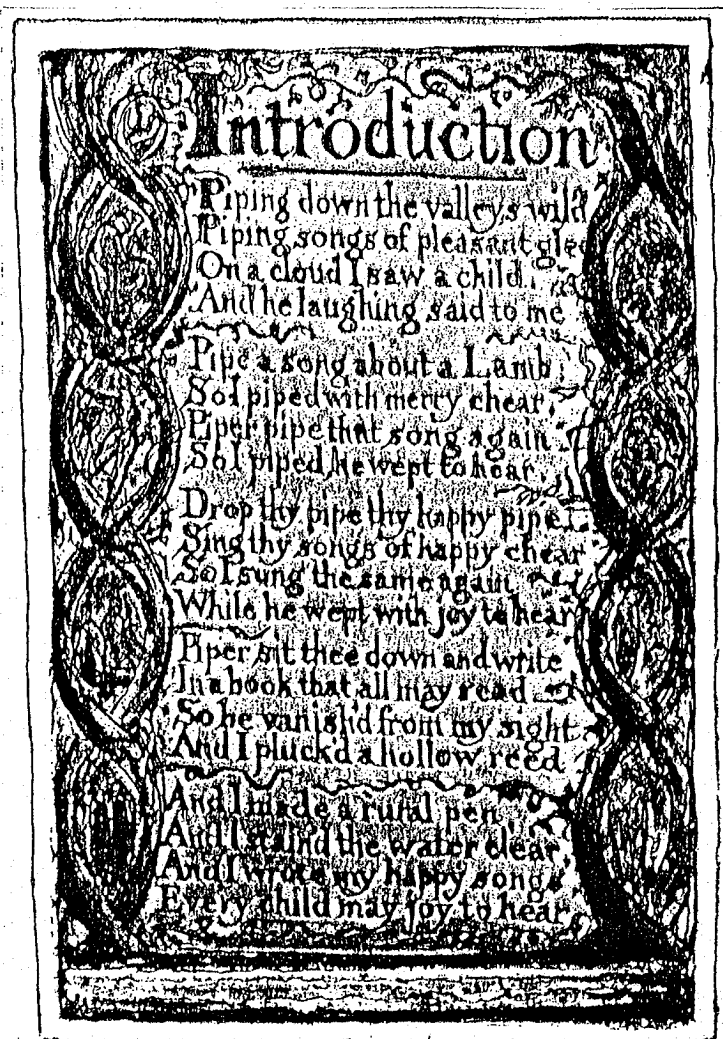 Introduction
Piping down the valleys wild
Piping songs of pleasant glee
On a cloud I saw a child.
And he laughing said to me
Pipe a song about a Lamb;
So I piped with merry chear,
Piper pipe that song again
So I piped, he wept to hear.
Drop thy pipe thy happy pipe
Sing thy songs of happy chear
So I sung the same again
While he wept with joy to hear
Piper sit thee down and write
In a book that all may read
So he vanish'd from my sight
And I pluck'd a hollow reed
And I made a rural pen,
And I stain'd the water clear,
And I wrote my happy songs
Every child may joy to hear